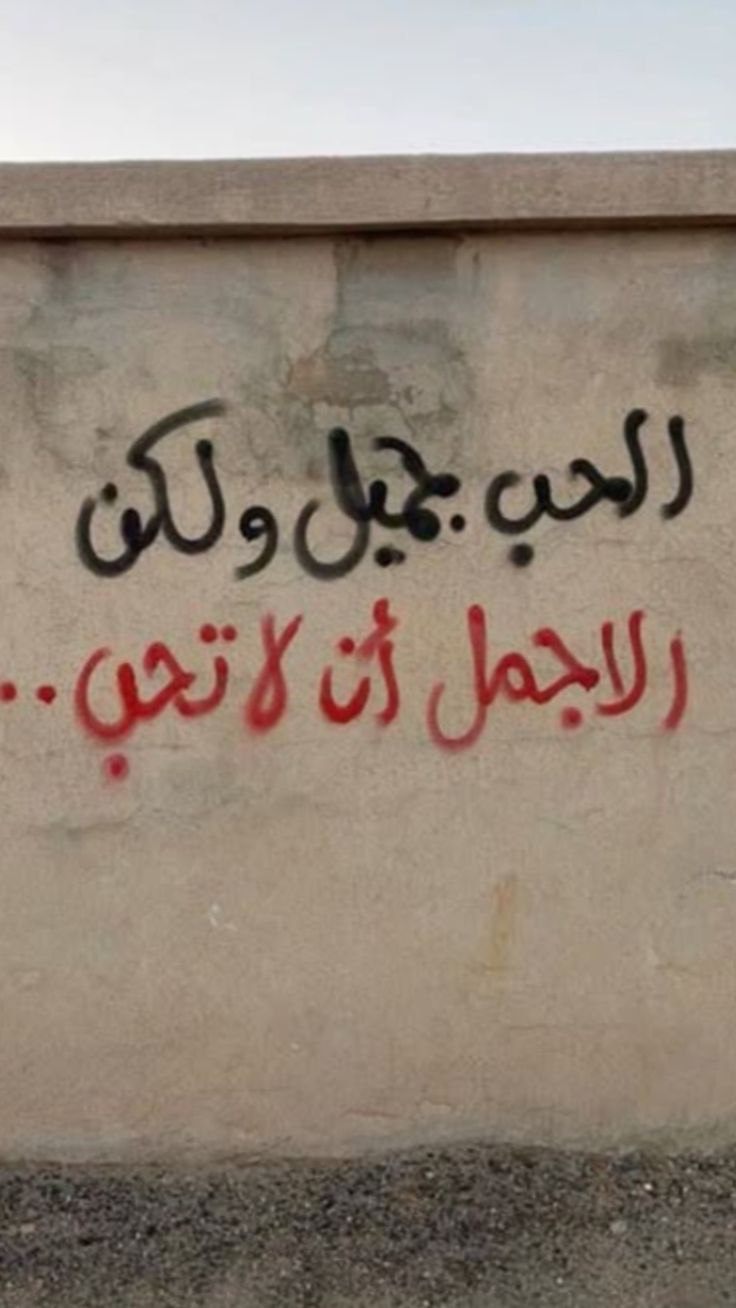 الحب جميل ولكن
الاجمل أن لا تحب ..